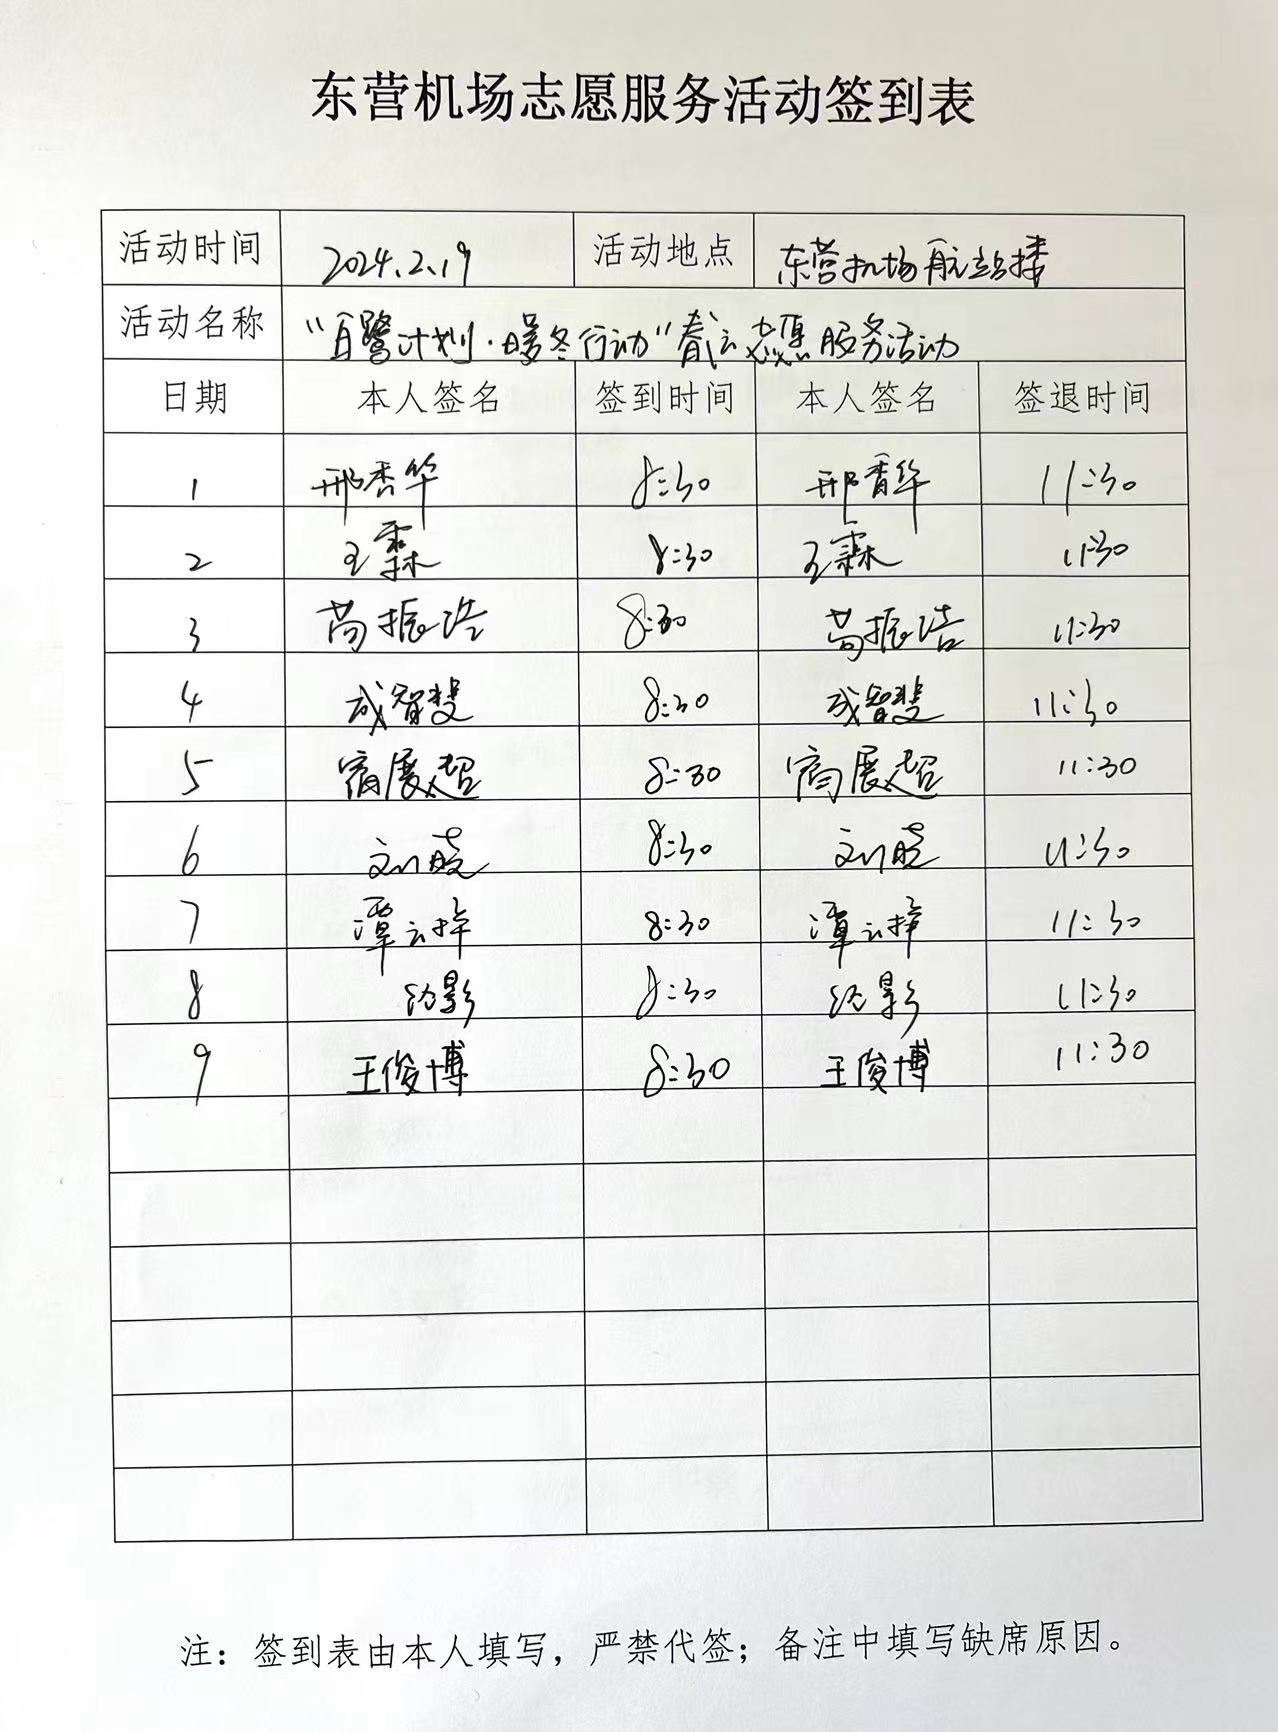 东营机场志愿服务活动签到表
活动时间 2024.2.19 活动地点 东营机场航站楼
活动名称 "白鹭计划·暖冬行动"春运志愿服务活动
日期 本人签名 签到时间 本人签名 签退时间
1 邢香华 8:30 邢香华 11:30
2 王霖 8:30 王霖 11:30
3 苟振浩 8:30 苟振浩 11:30
4 成智斐 8:30 成智斐 11:30
5 展超 8:30 展超 11:30
6 刘晓 8:30 刘晓 11:30
7 潭云梓 8:30 潭云梓 11:30
8 影 8:30 影 11:30
9 王俊博 8:30 王俊博 11:30
注：签到表由本人填写，严禁代签；备注中填写缺席原因。